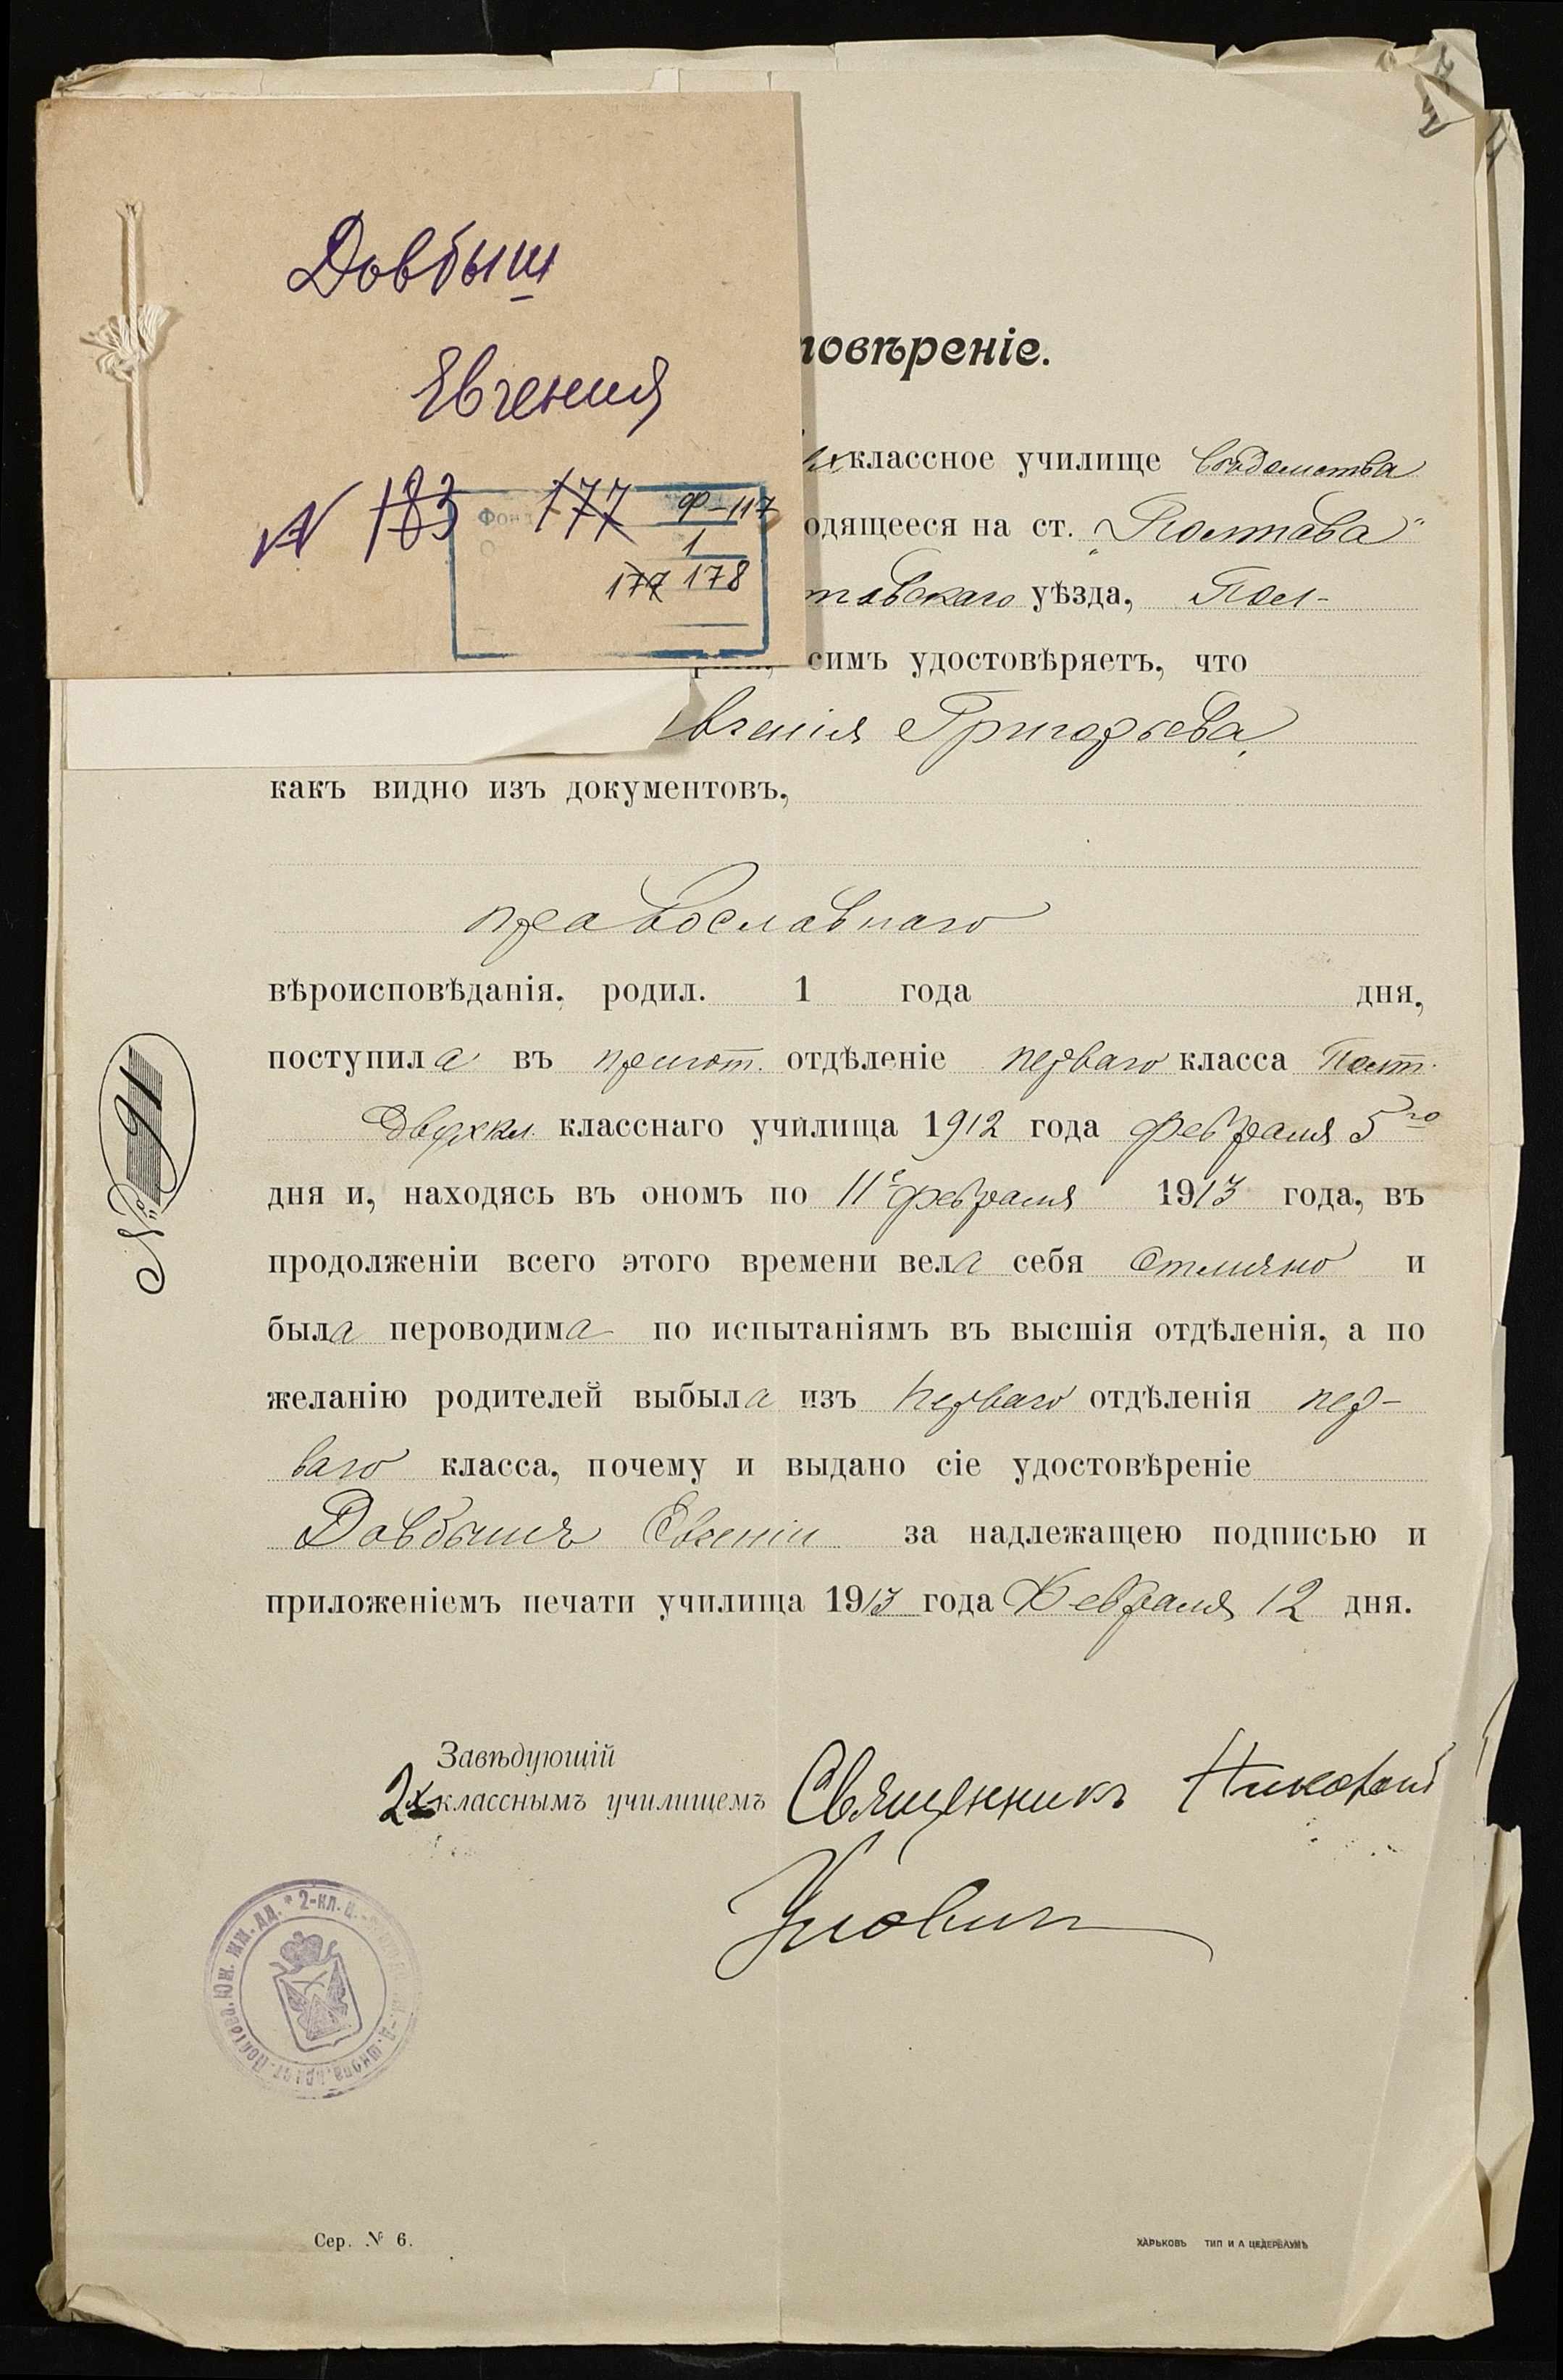 Довбыш
Евгения
N 183 177 Ф-117
Фонд
1
177 178
товѣреніе.
хклассное училище вѣдомства
одящееся на ст. „Полтава"
тавскаго уѣзда, Пол-
симъ удостовѣряетъ, что
вгенія Григорьева,
какъ видно изъ документовъ,
православнаго
вѣроисповѣданія, родил. 1 года дня,
поступила въ пригот. отдѣленіе перваго класса Полт.
Двухкл. класснаго училища 1912 года февраля 5го
дня и, находясь въ ономъ по 11е февраля 1913 года, въ
продолженіи всего этого времени вела себя отлично и
была пероводима по испытаніямъ въ высшія отдѣленія, а по
желанію родителей выбыла изъ перваго отдѣленія пер-
ваго класса, почему и выдано сіе удостовѣреніе
Довбышъ Евгеніи за надлежащею подписью и
приложеніемъ печати училища 1913 года Февраля 12 дня.
№ 91
Завѣдующій
2хкласснымъ училищемъ Священникъ Николай
2-кл. ц.
Ю. ж. д.
Сер. № 6.
ХАРЬКОВЪ ТИП И А ЦЕДЕРБАУМЪ